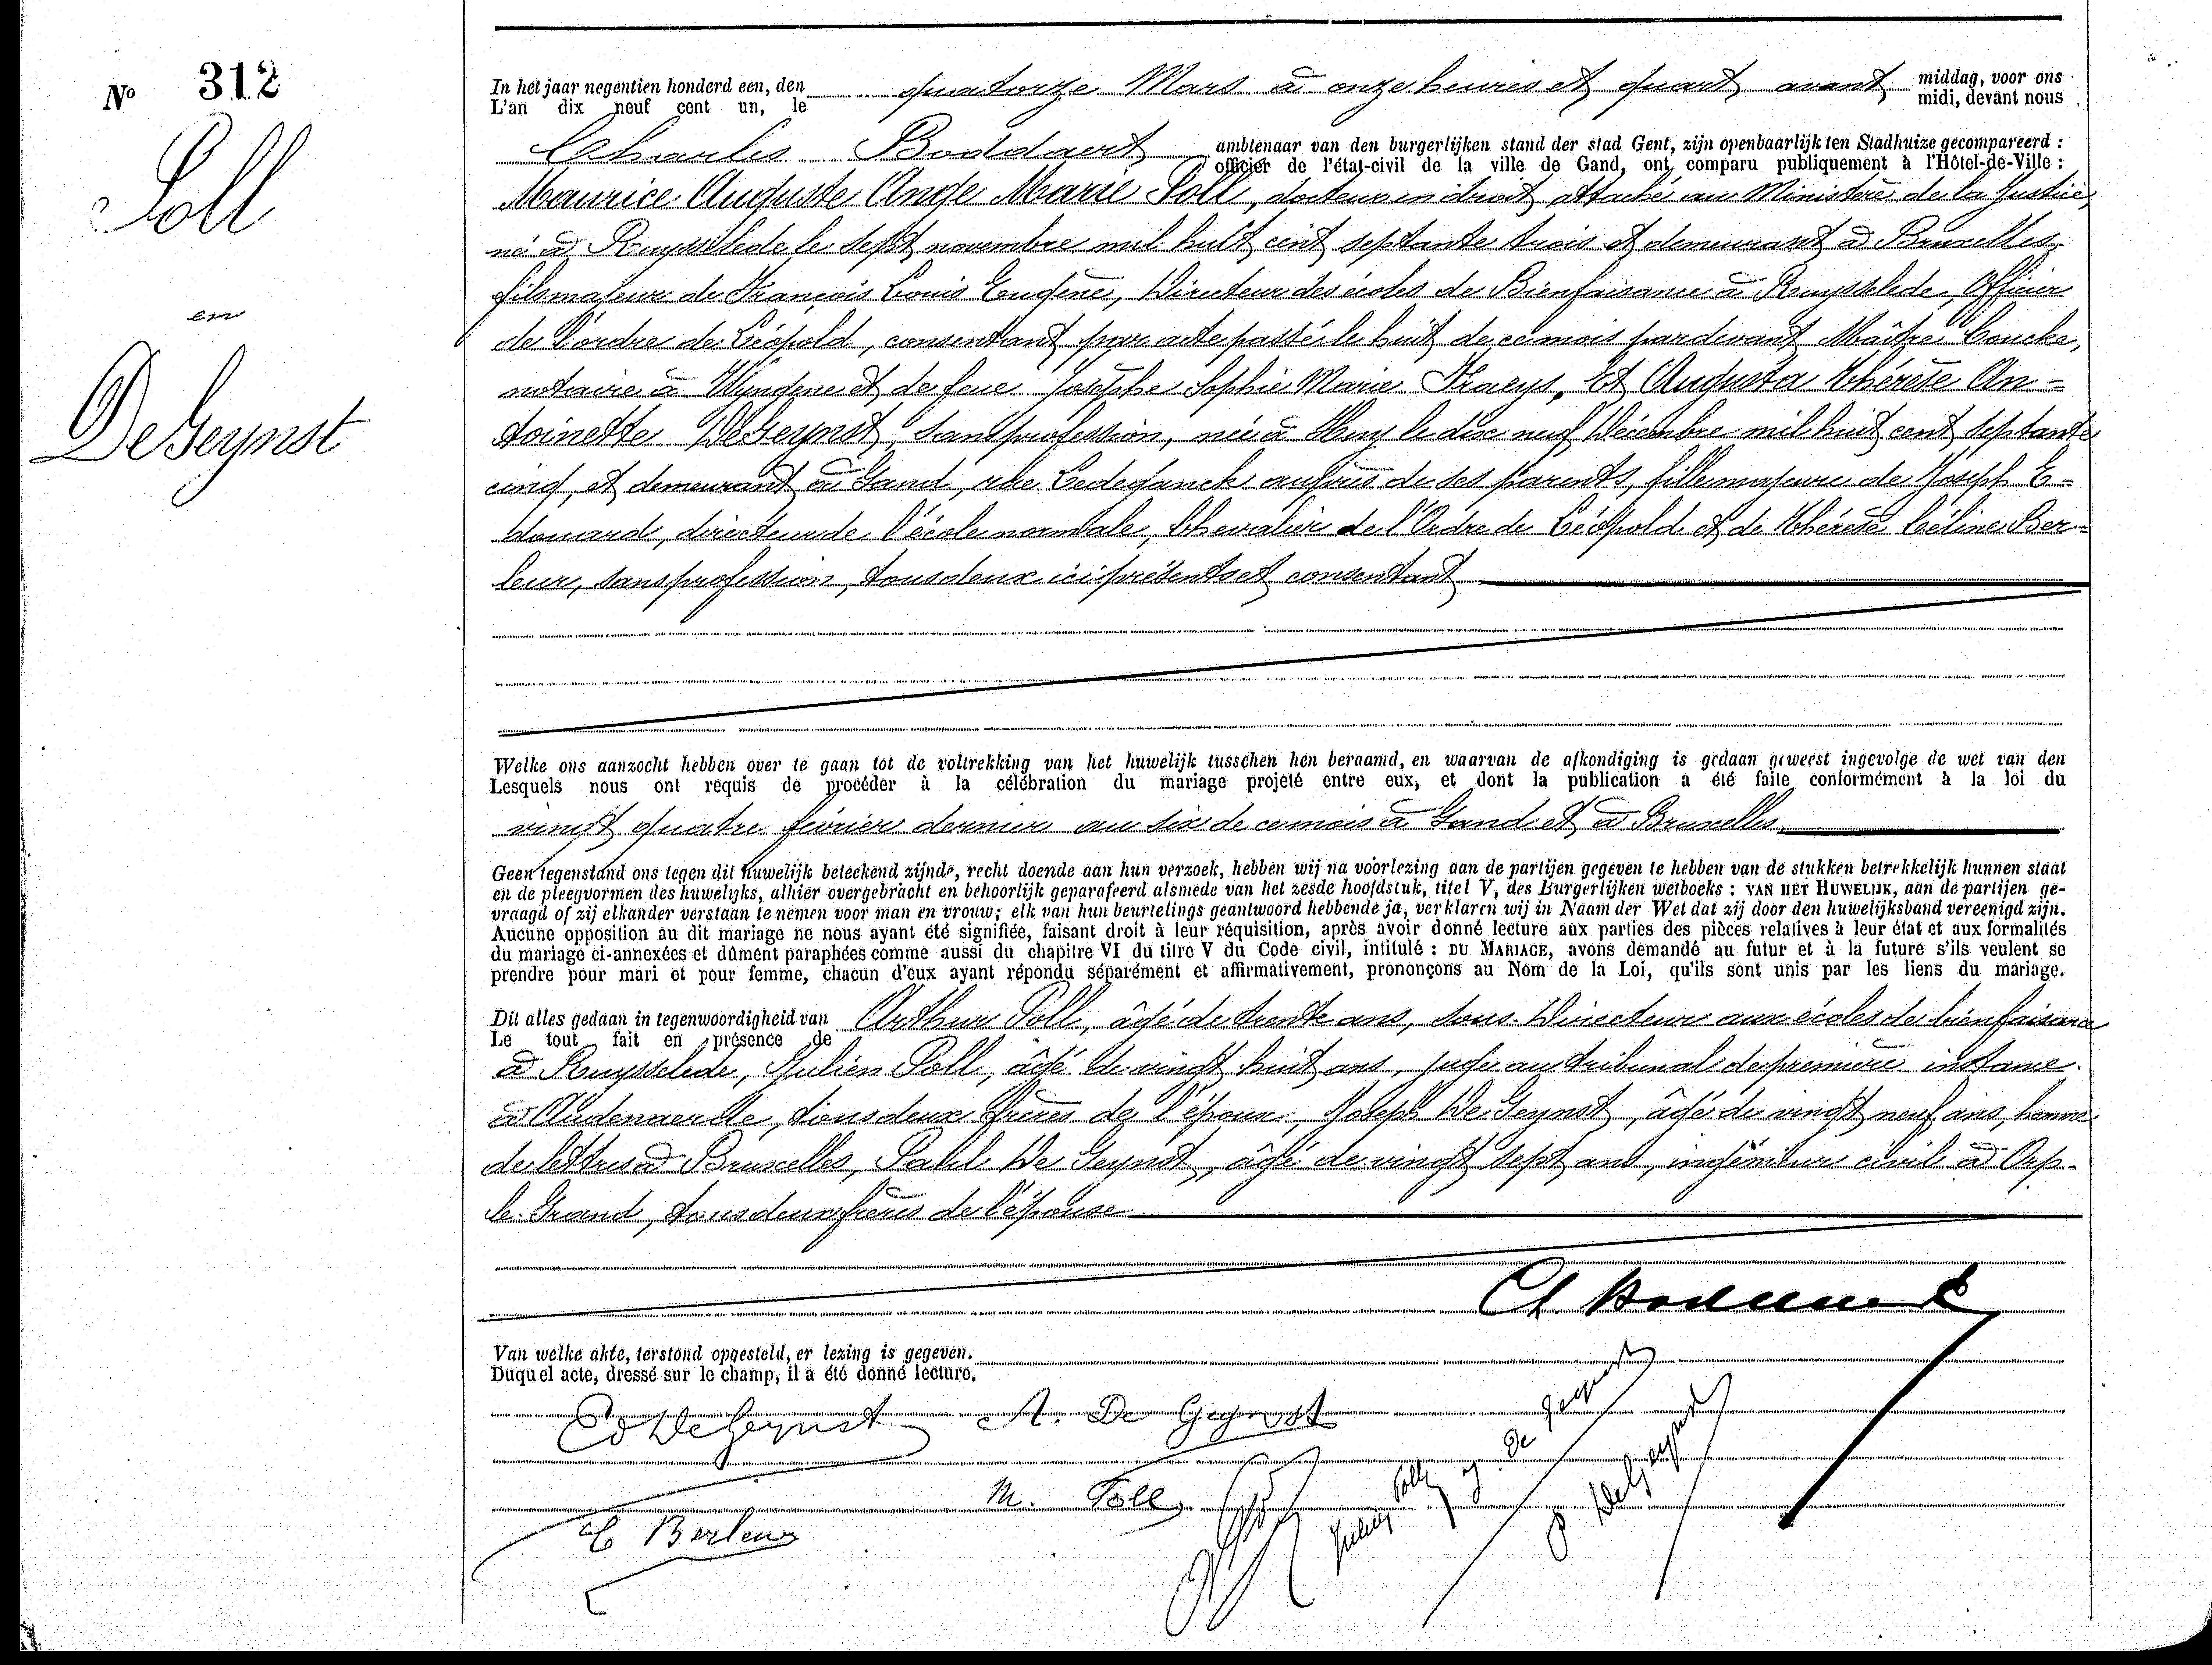 No 312
Poll
en
De Geynst
In het jaar negentien honderd een, den
L'an dix neuf cent un, le
quatorze Mars à onze heures et quart avant
middag, voor ons
midi, devant nous,
Charles Boddaert
ambtenaar van den burgerlijken stand der stad Gent, zijn openbaarlijk ten Stadhuize gecompareerd :
officier de l'état-civil de la ville de Gand, ont comparu publiquement à l'Hôtel-de-Ville :
Maurice Auguste Ange Marie Poll, docteur en droit, attaché au Ministère de la Justice,
né à Ruysselede le sept novembre mil huit cent septante trois et demeurant à Bruxelles,
fils majeur de François Louis Eugène, Directeur des écoles de Bienfaisance à Ruysselede, Officier
de l'ordre de Léopold, consentant par acte passé le huit de ce mois pardevant Maître Coucke,
notaire à Wyngene et de feue Josèphe Sophie Marie Fraeys, Et Augusta Thérèse An-
toinette De Geynst, sans profession, née à Huy le dix neuf Décembre mil huit cent septante
cinq, et demeurant à Gand, rue Ledeganck auprès de ses parents, fille majeure de Joseph E-
douard, directeur de l'école normale, Chevalier de l'Ordre de Léopold et de Thérèse Céline Ber-
leur, sans profession, tous deux ici présents et consentant
Welke ons aanzocht hebben over te gaan tot de voltrekking van het huwelijk tusschen hen beraamd, en waarvan de afkondiging is gedaan geweest ingevolge de wet van den
Lesquels nous ont requis de procéder à la célébration du mariage projeté entre eux, et dont la publication a été faite conformément à la loi du
vingt quatre février dernier au six de ce mois à Gand et à Bruxelles.
Geen tegenstand ons tegen dit huwelijk beteekend zijnde, recht doende aan hun verzoek, hebben wij na voorlezing aan de partijen gegeven te hebben van de stukken betrekkelijk hunnen staat
en de pleegvormen des huwelijks, alhier overgebracht en behoorlijk geparafeerd alsmede van het zesde hoofdstuk, titel V, des Burgerlijken wetboeks : VAN HET HUWELIJK, aan de partijen ge-
vraagd of zij elkander verstaan te nemen voor man en vrouw; elk van hun beurtelings geantwoord hebbende ja, verklaren wij in Naam der Wet dat zij door den huwelijksband vereenigd zijn.
Aucune opposition au dit mariage ne nous ayant été signifiée, faisant droit à leur réquisition, après avoir donné lecture aux parties des pièces relatives à leur état et aux formalités
du mariage ci-annexées et dûment paraphées comme aussi du chapitre VI du titre V du Code civil, intitulé : DU MARIAGE, avons demandé au futur et à la future s'ils veulent se
prendre pour mari et pour femme, chacun d'eux ayant répondu séparément et affirmativement, prononçons au Nom de la Loi, qu'ils sont unis par les liens du mariage.
Dit alles gedaan in tegenwoordigheid van
Le tout fait en présence de
Arthur Poll, âgé de trente ans, Sous-Directeur aux écoles de bienfaisance
à Ruysselede, Julien Poll, âgé de vingt huit ans, juge au tribunal de première instance
à Audenaerde, tous deux frères de l'époux, Joseph De Geynst, âgé de vingt neuf ans, homme
de lettres à Bruxelles, Paul De Geynst, âgé de vingt sept ans, ingénieur civil à Orp-
le-Grand, tous deux frères de l'épouse
Ch Boddaert
Van welke akte, terstond opgesteld, er lezing is gegeven.
Duquel acte, dressé sur le champ, il a été donné lecture.
Ed De Geynst A. De Geynst
J. De Geynst
P De Geynst
M. Poll
Julien Poll
C Berleur